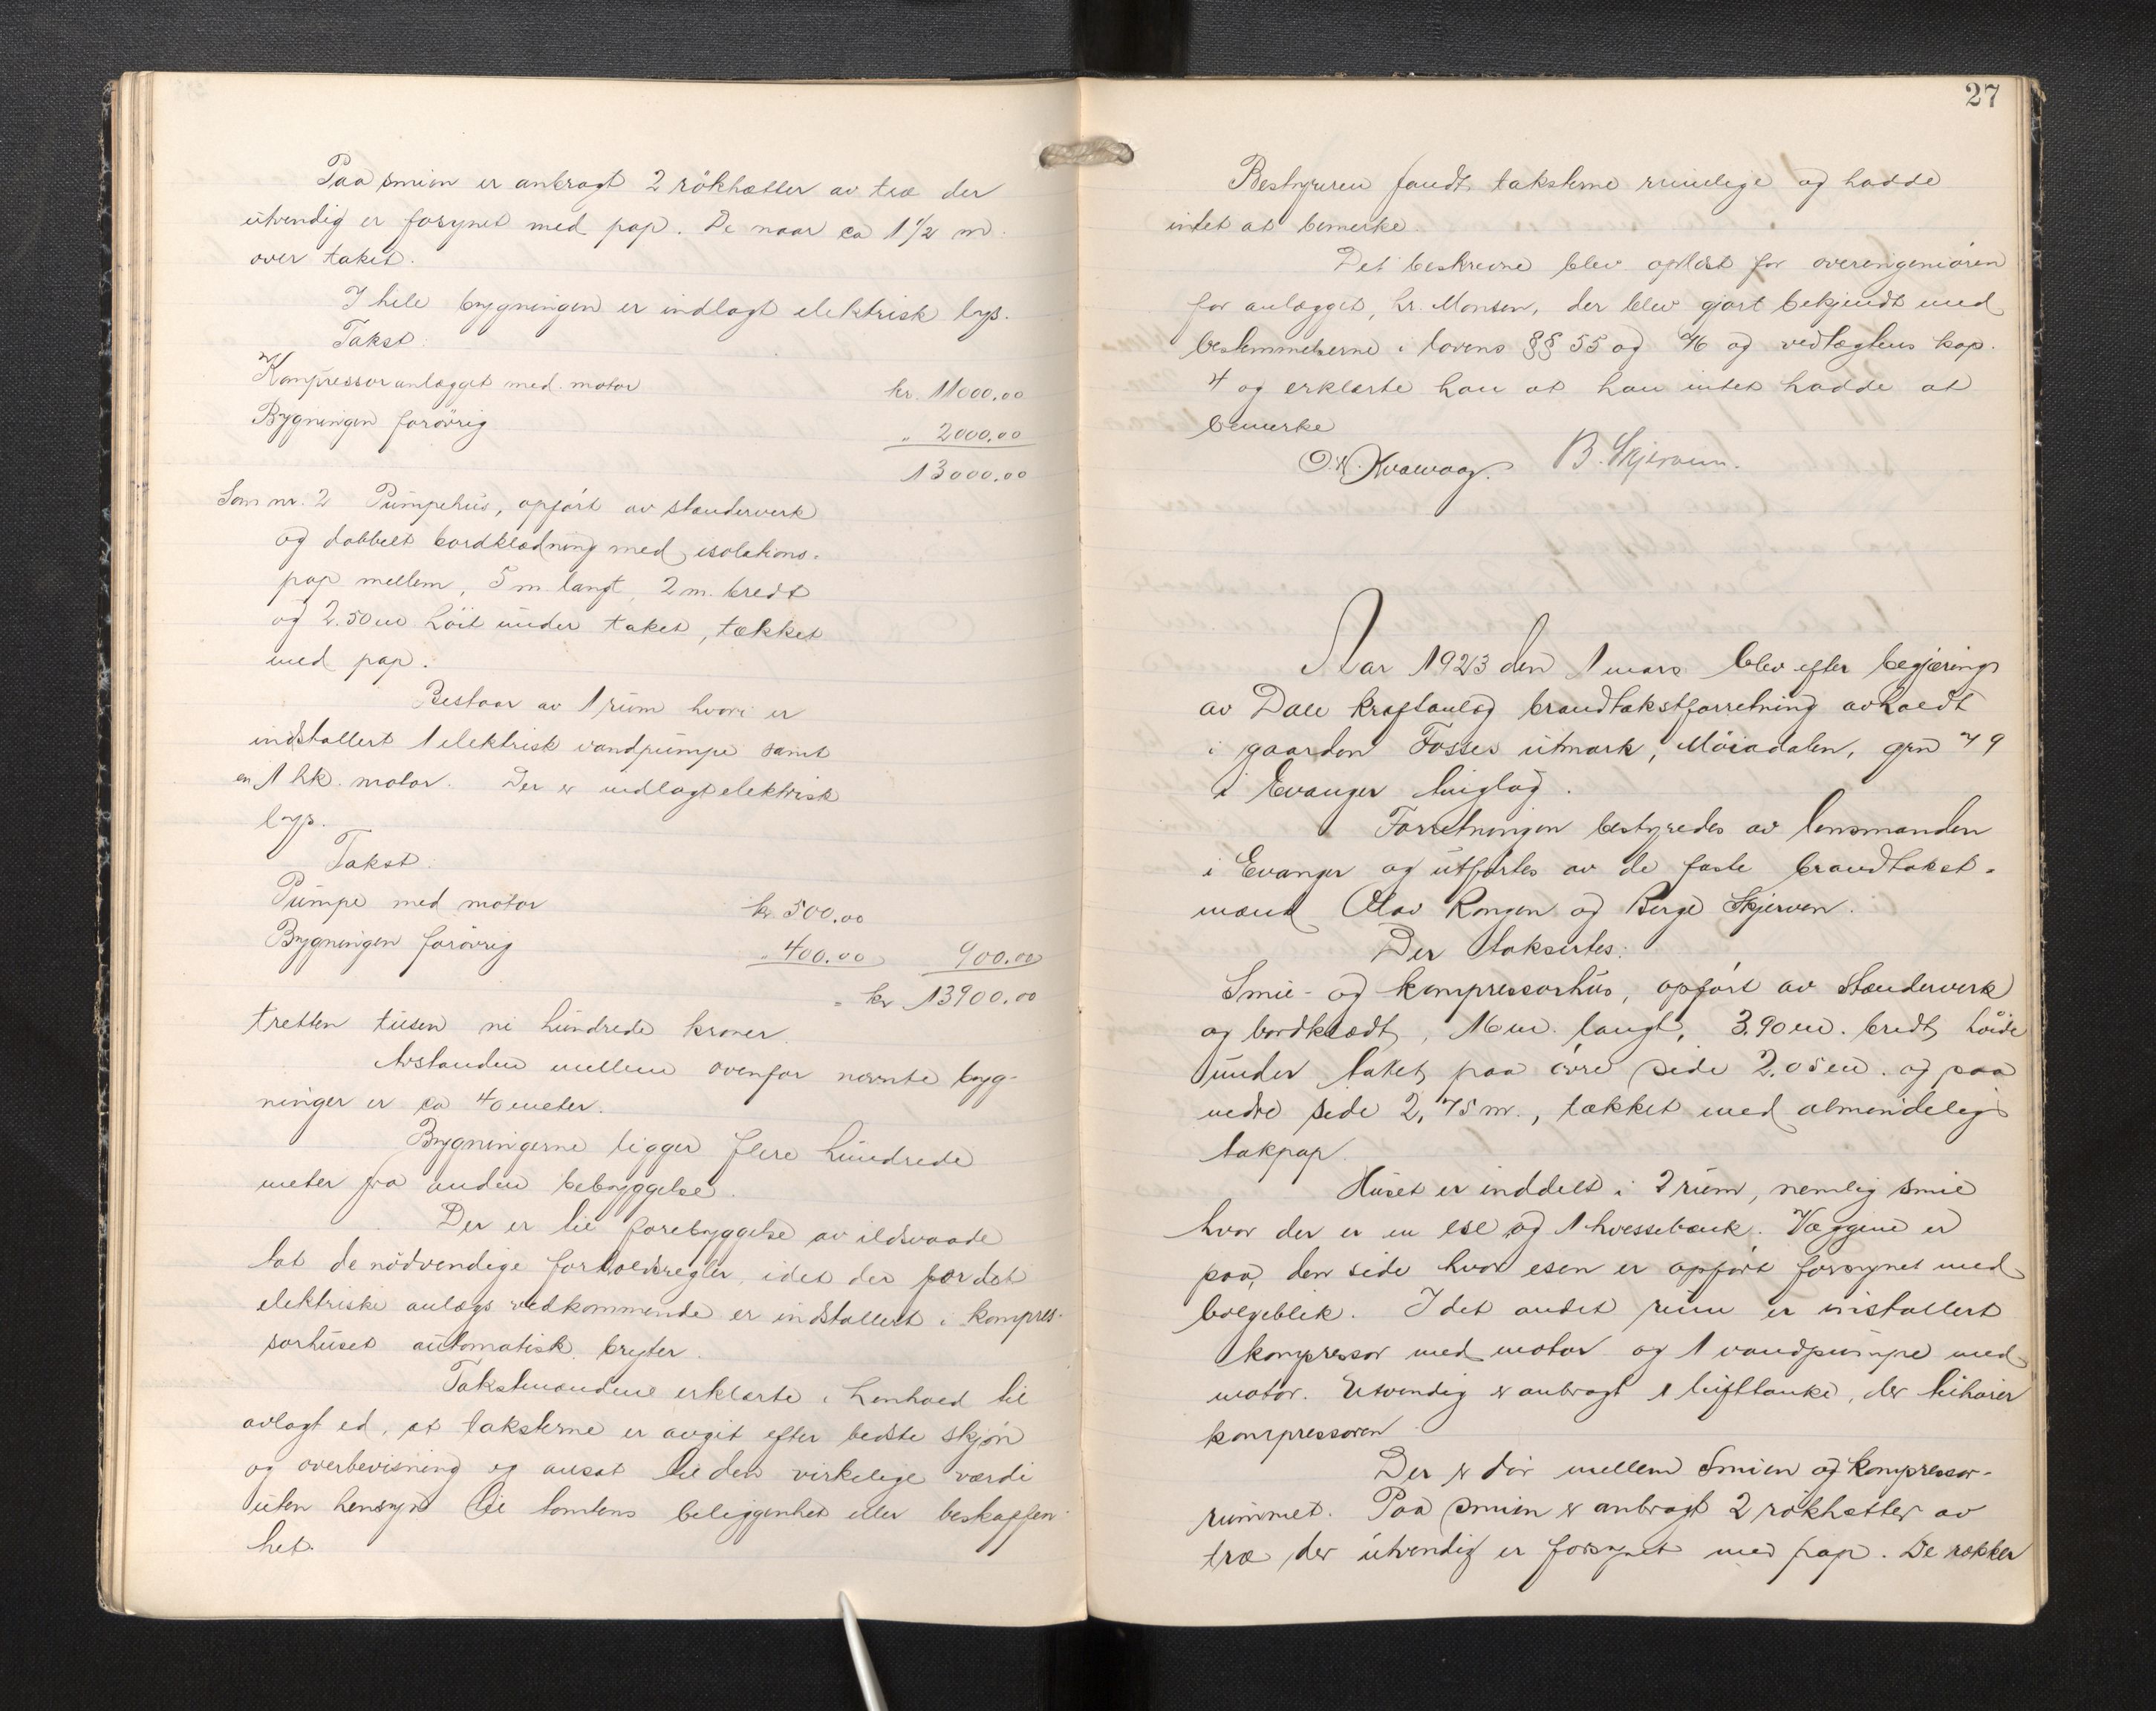 Paa smien er anbragt 2 rökhætter av træ der
utvendig er forsynet med pap. De naar ca 1 1/2 m.
over taket.
I hele bygningen er indlagt elektrisk lys.
Takst:
Kompressoranlægget med motor kr. 11000.00
Bygningen forøvrig " 2000.00
13000.00
Som nr. 2 Pumpehus, opført av stenderverk
og dobbelt bordklædning med isolations-
pap mellem, 5 m langt, 2 m. bredt
og 2.50 m höit under taket, tækket
med pap.
Bestaar av 1 rum hvori er
indstallert 1 elektrisk vandpumpe samt
en 1 hk. motor. Der er indlagt elektrisk
lys.
Takst:
Pumpe med motor kr. 500.00
Bygningen forøvrig " 400.00 900.00
= kr 13900.00
tretten tusen ni hundrede kroner.
Avstanden mellem ovenfor nævnte byg-
ninger er ca 40 meter.
Bygningerne ligger flere hundrede
meter fra anden bebyggelse.
Der er til forebyggelse av ildsvaade
tat de nödvendige forholdsregler, idet der for det
elektriske anlægs vedkommende er indstallert i kompres-
sorhuset automatisk bryter.
Takstmændene erklærte i henhold til
avlagt ed, at taksterne er avgit efter bedste skjøn
og overbevisning og ansat til den virkelige værdi
uten hensyn til tomtens beliggenhet eller beskaffen-
het.
27
Bestyreren fandt taksterne rimelige og hadde
intet at bemerke.
Det beskrevne blev oplæst for overingeniøren
for anlægget, hr. Monsen, der blev gjort bekjendt med
bestemmelserne i lovens §§ 55 og 76 og vedtægtens kap.
4 og erklærte han at han intet hadde at
bemerke
B. Skjerven.
Aar 1923 den 1 mars blev efter begjæring
av Dale kraftanlæg brandtakstforretning avholdt
i gaarden Fosses utmark, Möiadalen, grn 79
i Evanger tinglag.
Forretningen bestyredes av lensmanden
i Evanger og utførtes av de faste brandtakst-
mænd Olav Rongen og Berge Skjerven.
Der taksertes:
Smie- og kompressorhus, opført av stenderverk
og bordklædt, 16 m. langt, 3.90 m. bredt, höide
under taket paa övre side 2.05 m. og paa
nedre side 2,75 m., tækket med almindelig
takpap.
Huset er inddelt i 2 rum, nemlig smie
hvor der er en esse og 1 hvessebænk. Væggene er
paa den side hvor esen er opført forsynet med
bølgeblik. I det andet rum er installert
kompressor med motor og 1 vandpumpe med
motor. Utvendig er anbragt 1 lufttanke, der tilhører
kompressoren.
Der er dör mellem smien og kompressor-
rummet. Paa smien er anbragt 2 rökhætter av
træ der utvendig er forsynet med pap. De rækker